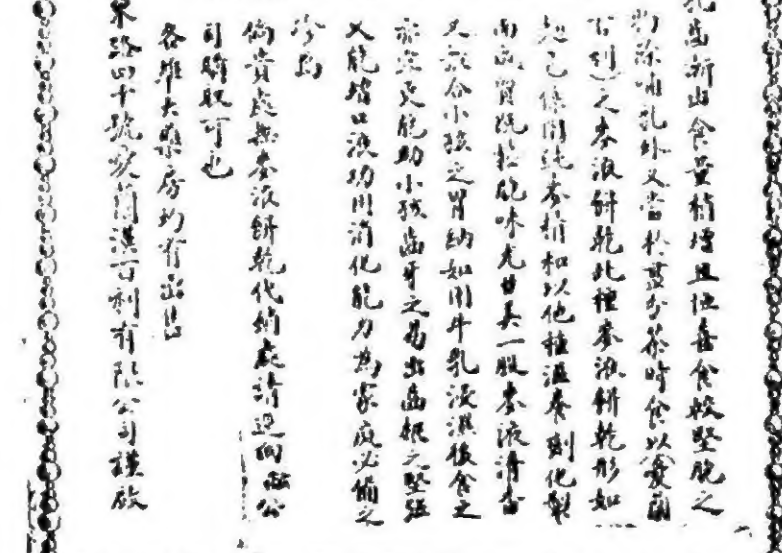 乳齒漸出食量稍增且恆喜食較堅脆之
物除哺乳外又當於早分茶時食以(愛蘭
百利)之麥液餅乾此種麥液餅乾形如
係用純麥精和以他種滋養製
而成質既鬆脆味尤甘美一股麥液清香
又最合小孩之胃納如用牛乳浸濕後食之
能助小孩齒牙之易出齒根之堅強
又能增口液功用消化能力為家庭必備之
珍品
倘貴處無麥液餅乾代銷處請逕向敝公
司購取可也
各埠大藥房均有出售
路四十號愛蘭漢百利有限公司謹啟